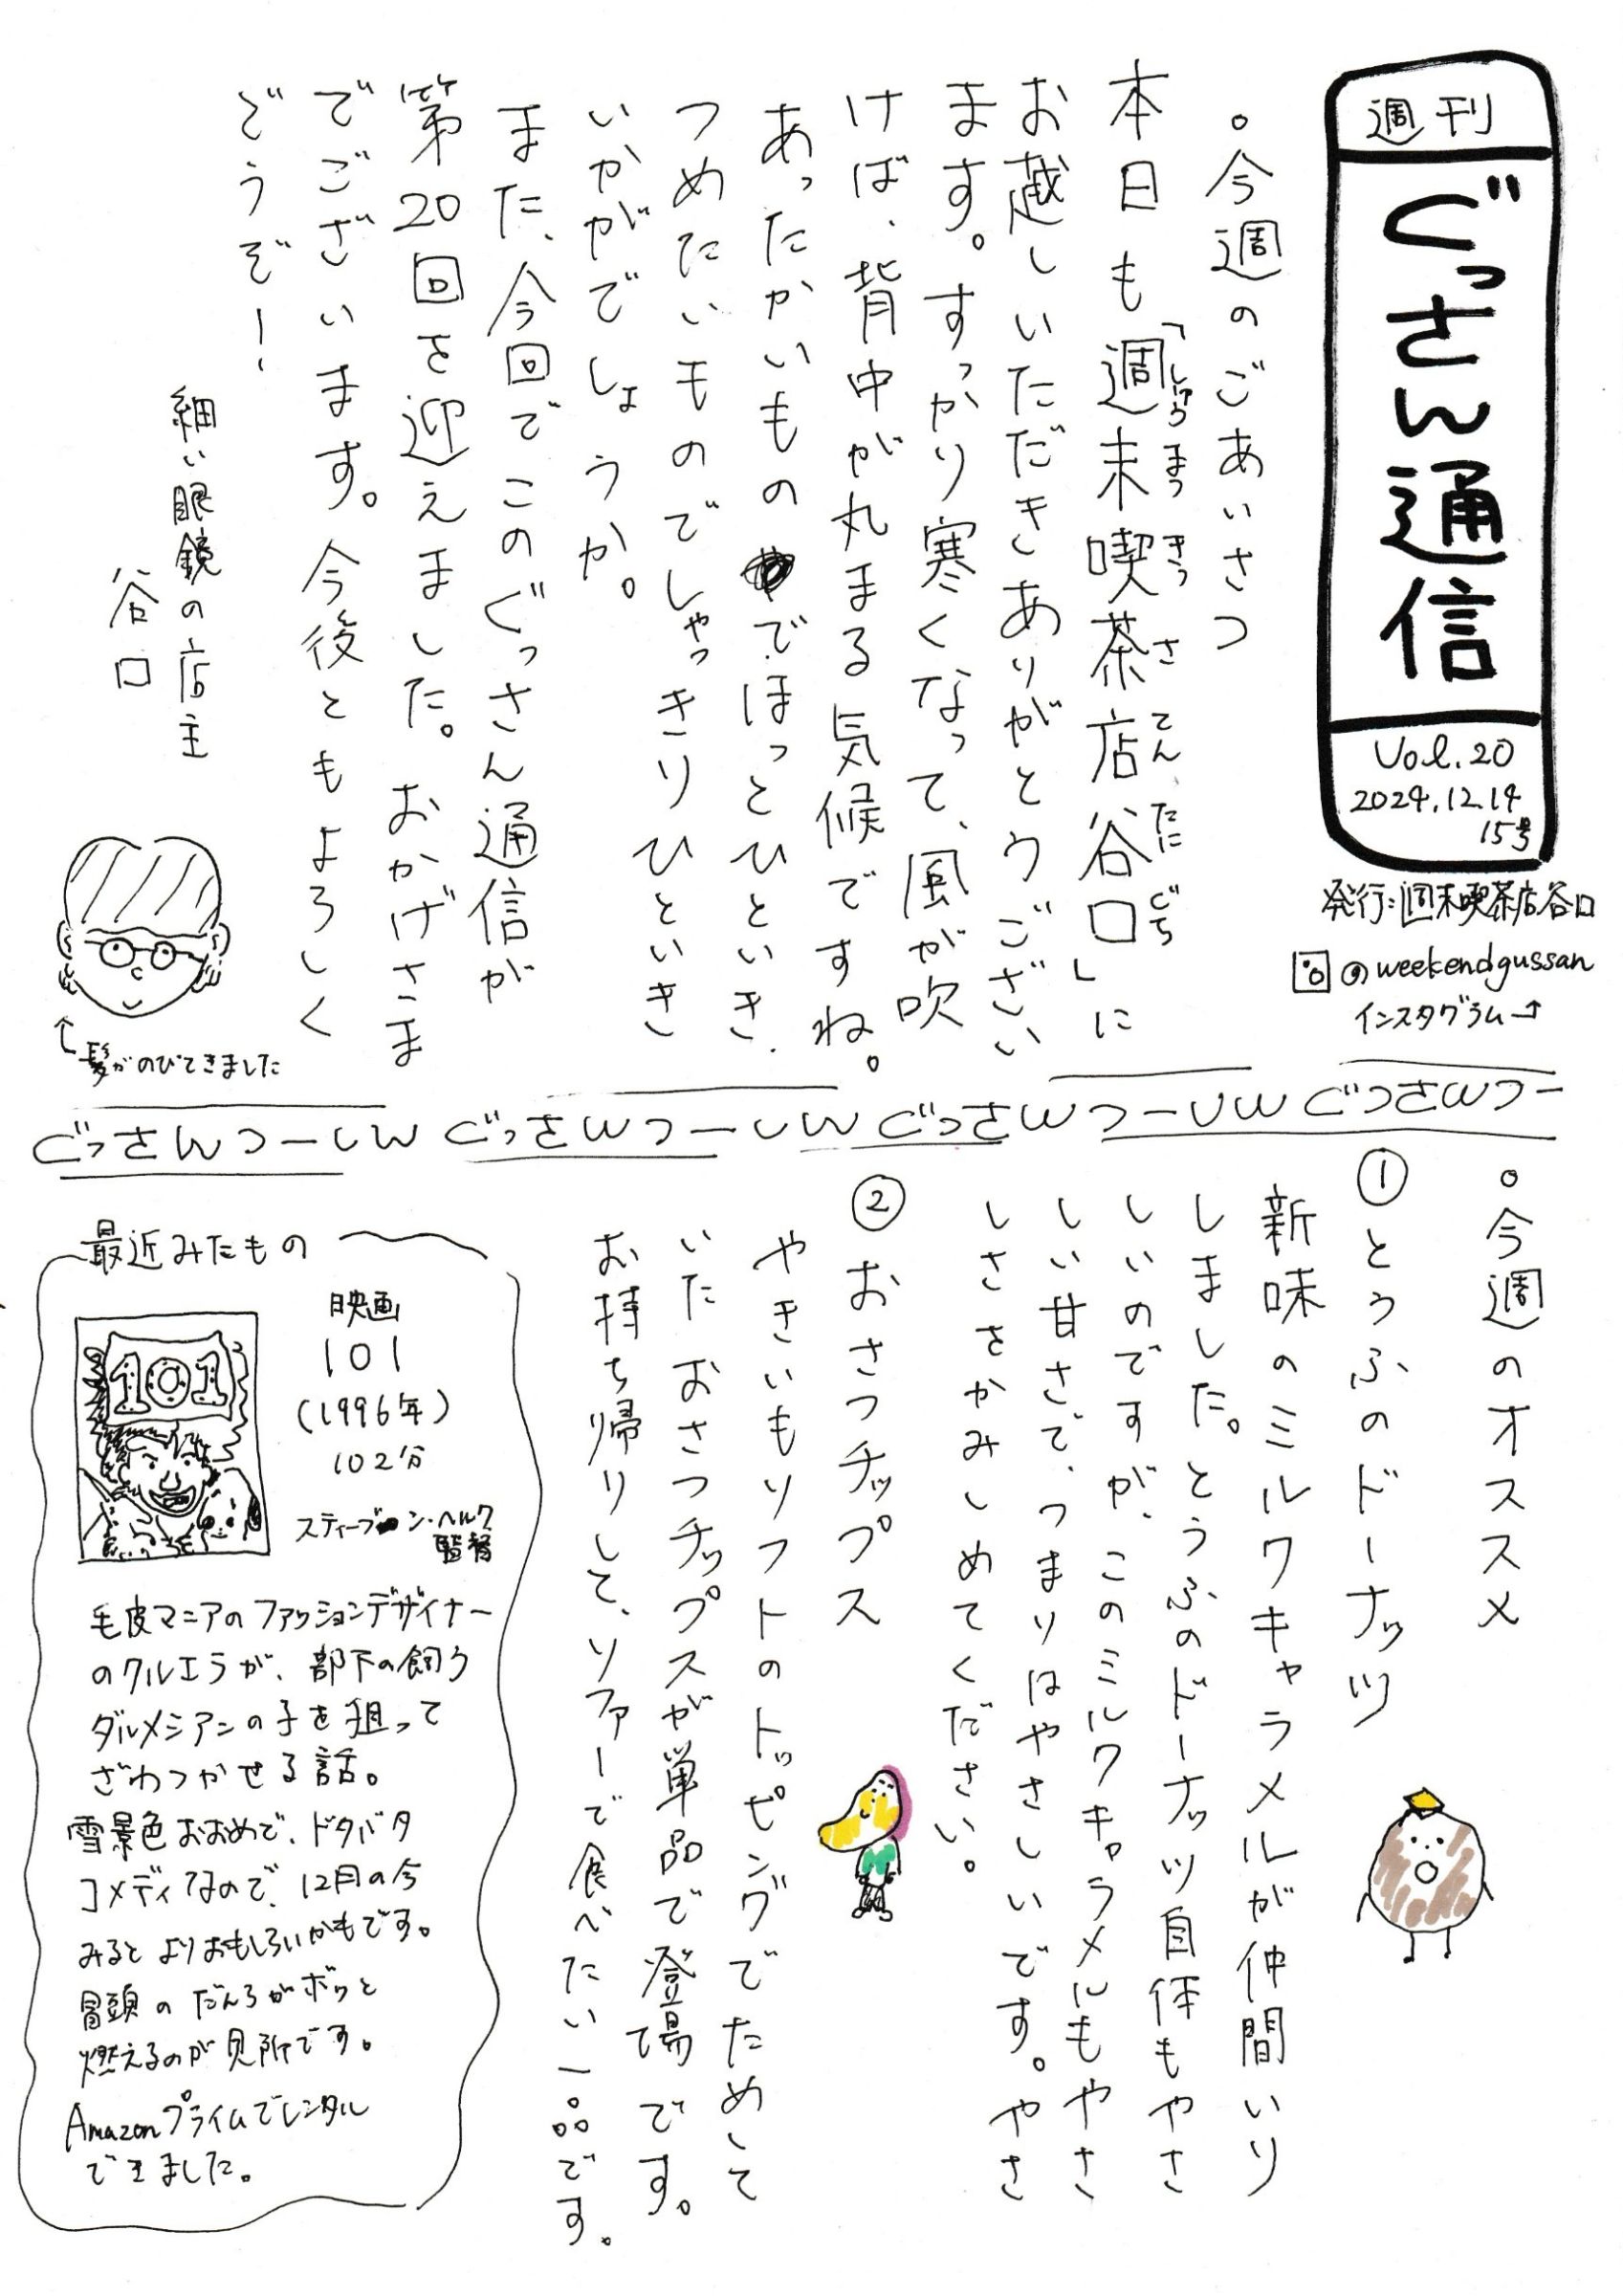 週刊
ぐっさん通信
Vol.20
2024.12.14
15号
発行:週末喫茶店谷口
@weekendgussan
インスタグラム→
。今週のごあいさつ
本日も「週末喫茶店谷口」に
しゅうまつきっさてんたにぐち
お越しいただきありがとうござい
ます。すっかり寒くなって、風が吹
けば、背中が丸まる気候ですね。
あったかいものでほっとひといき、
つめたいものでしゃっきりひといき
いかがでしょうか。
また、今回でこのぐっさん通信が
第20回を迎えました。おかげさま
でございます。今後ともよろしく
どうぞー!
細い眼鏡の店主
谷口
↑髪がのびてきました
ぐっさんつーしん ぐっさんつーしん ぐっさんつーしん ぐっさんつー
。今週のオススメ
①とうふのドーナッツ
新味のミルクキャラメルが仲間いり
しました。とうふのドーナッツ自体もやさ
しいのですが、このミルクキャラメルもやさ
しい甘さで、つまりはやさしいです。やさ
しさをかみしめてください。
②おさつチップス
やきいもソフトのトッピングでためして
いたおさつチップスが単品で登場です。
お持ち帰りして、ソファーで食べたい一品です。
最近みたもの
映画
101
(1996年)
102分
スティーブン・ヘレク
監督
101
毛皮マニアのファッションデザイナー
のクルエラが、部下の飼う
ダルメシアンの子を狙って
ざわつかせる話。
雪景色おおめで、ドタバタ
コメディなので、12月の今
みるとよりおもしろいかもです。
冒頭のだんろがボッと
燃えるのが見所です。
Amazonプライムでレンタル
できました。